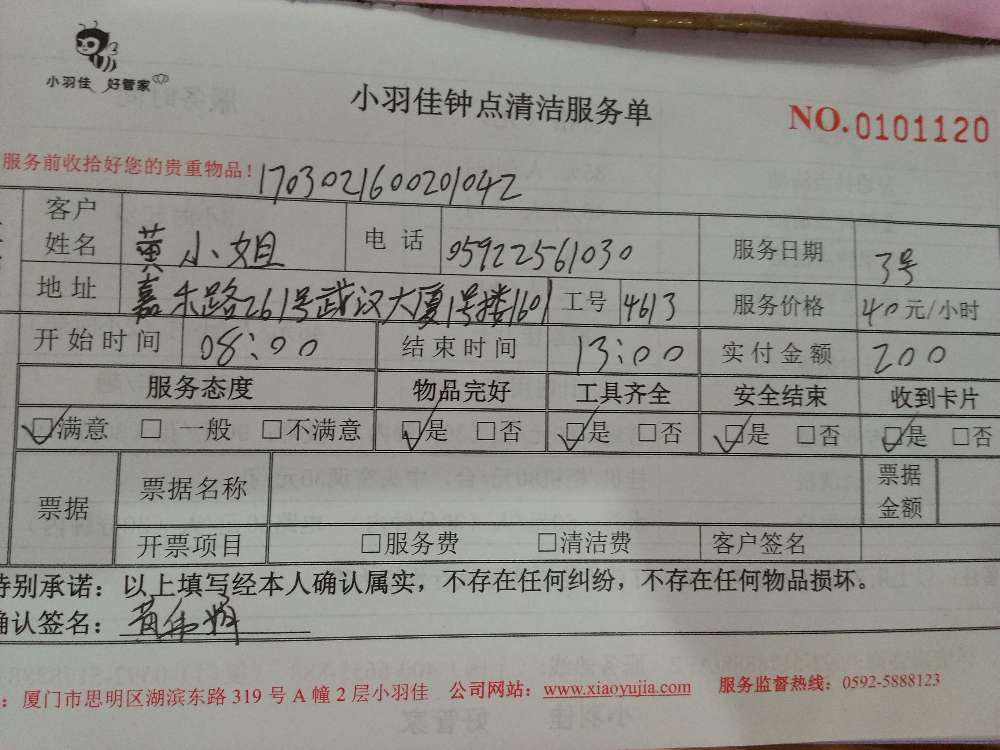 小羽佳 好管家
小羽佳钟点清洁服务单
NO.0101120
服务前收拾好您的贵重物品！1703021600201042
客户姓名 黄小姐 电话 05922561030 服务日期 3号
地址 嘉禾路261号武汉大厦1号楼1601 工号 4613 服务价格 40元/小时
开始时间 08:00 结束时间 13:00 实付金额 200
服务态度 物品完好 工具齐全 安全结束 收到卡片
☑满意 □一般 □不满意 ☑是 □否 ☑是 □否 ☑是 □否 ☑是 □否
票据 票据名称 票据金额
开票项目 □服务费 □清洁费 客户签名
特别承诺：以上填写经本人确认属实，不存在任何纠纷，不存在任何物品损坏。
确认签名：
：厦门市思明区湖滨东路319号A幢2层小羽佳 公司网站：www.xiaoyujia.com 服务监督热线：0592-5888123